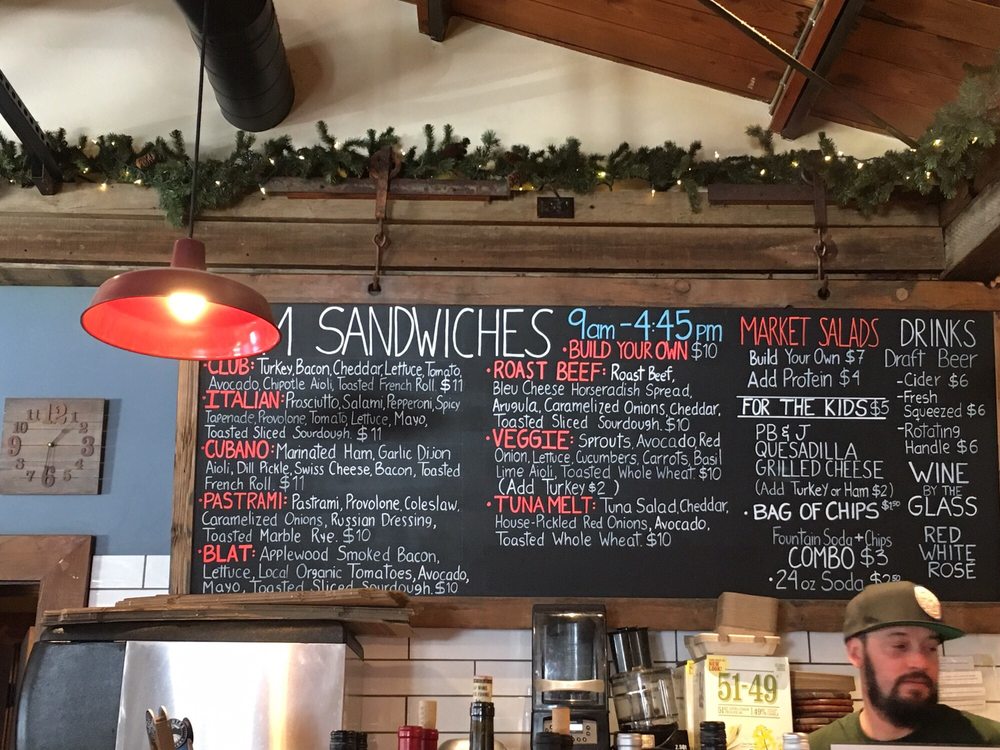 M SANDWICHES 9am-4:45pm
• CLUB: Turkey, Bacon, Cheddar, Lettuce, Tomato,
Avocado, Chipotle Aioli, Toasted French Roll. $11
• ITALIAN: Prosciutto, Salami, Pepperoni, Spicy
Tapenade, Provolone, Tomato, Lettuce, Mayo,
Toasted Sliced Sourdough. $11
• CUBANO: Marinated Ham, Garlic Dijon
Aioli, Dill Pickle, Swiss Cheese, Bacon, Toasted
French Roll. $11
• PASTRAMI: Pastrami, Provolone, Coleslaw,
Caramelized Onions, Russian Dressing,
Toasted Marble Rye. $10
• BLAT: Applewood Smoked Bacon,
Lettuce, Local Organic Tomatoes, Avocado,
Mayo, Toasted Sliced Sourdough. $10
• BUILD YOUR OWN $10
• ROAST BEEF: Roast Beef,
Bleu Cheese Horseradish Spread,
Arugula, Caramelized Onions, Cheddar,
Toasted Sliced Sourdough. $10
• VEGGIE: Sprouts, Avocado, Red
Onion, Lettuce, Cucumbers, Carrots, Basil
Lime Aioli, Toasted Whole Wheat. $10
(Add Turkey $2 )
• TUNA MELT: Tuna Salad, Cheddar,
House-Pickled Red Onions, Avocado,
Toasted Whole Wheat. $10
MARKET SALADS
Build Your Own $7
Add Protein $4
FOR THE KIDS $5
PB & J
QUESADILLA
GRILLED CHEESE
(Add Turkey or Ham $2)
• BAG OF CHIPS $1.50
Fountain Soda + Chips
COMBO $3
• 24oz Soda
DRINKS
Draft Beer
-Cider $6
-Fresh
Squeezed $6
-Rotating
Handle $6
WINE
BY THE
GLASS
RED
WHITE
ROSÉ
12
1
2
3
4
5
6
7
8
9
10
11
NEW LOOK!
51-49